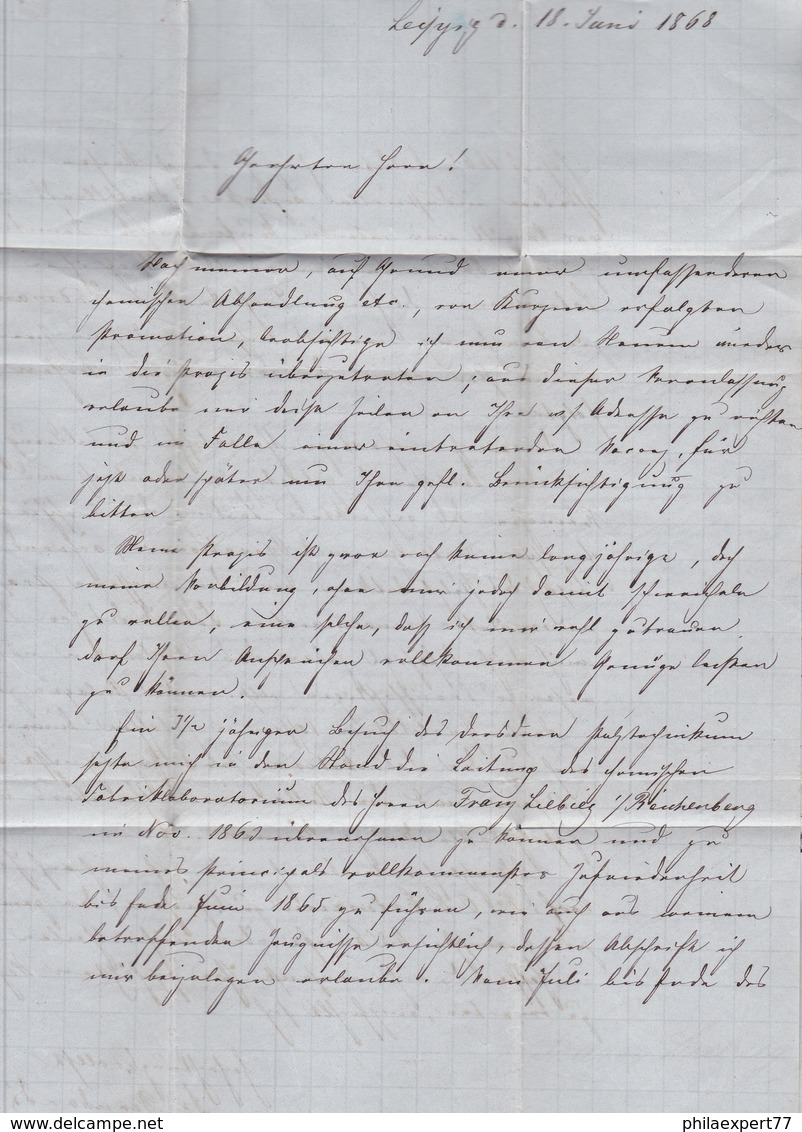 Leipzig d. 18. Juni 1868
Geehrter Herr!
Nach meiner, auf Grund einer umfassenderen
chemischen Abhandlung etc., vor Kurzem erfolgten
Promotion, beabsichtige ich nun von Neuem wieder
in die Praxis überzutreten; aus dieser Veranlassung
erlaube mir diese Zeilen an Ihre w/ Adresse zu richten
und im Falle einer eintretenden Vacanz, für
jetzt oder später um Ihre gefl. Berücksichtigung zu
bitten
Meine Praxis ist zwar noch keine langjährige, doch
meine Vorbildung, ohne mir jedoch damit schmeicheln
zu wollen, eine solche, daß ich mir wohl zutrauen
darf Ihren Ansprüchen vollkommen Genüge leisten
zu können.
Ein 3½ jähriger Besuch des Dresdner Polytechnikum
setzte mich in den Stand die Leitung des chemischen
Fabriklaboratorium des Herrn Franz Liebieg i/Reichenberg
im Nov. 1863 übernehmen zu können und zu
meines Principals vollkommenster Zufriedenheit
bis Ende Juni 1865 zu führen, wie auch aus meinem
betreffenden Zeugnisse ersichtlich, dessen Abschrift ich
mir beizulegen erlaube. Vom Juli bis Ende des
philaexpert77
delcampe.net